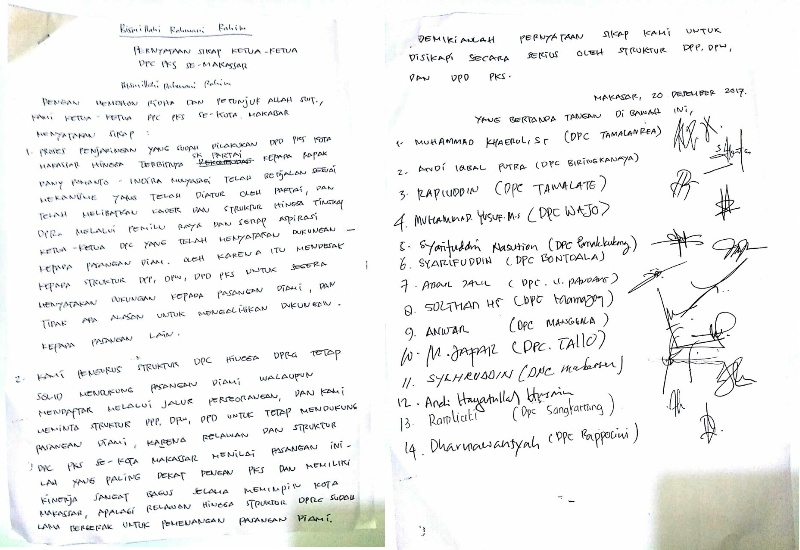 Bismillahi Rahmani Rahim
PERNYATAAN SIKAP KETUA-KETUA
DPC PKS SE-MAKASSAR
Bismillahi Rahmani Rahim
DENGAN MEMOHON RIDHA DAN PETUNJUK ALLAH SWT.,
KAMI KETUA-KETUA DPC PKS SE-KOTA MAKASSAR
MENYATAKAN SIKAP :
1. PROSES PENJARINGAN YANG SUDAH DILAKUKAN DPD PKS KOTA
MAKASSAR HINGGA TERBITNYA SK PARTAI KEPADA BAPAK
DANY POMANTO - INDIRA MULYASARI TELAH BERJALAN SESUAI
MEKANISME YANG TELAH DIATUR OLEH PARTAI, DAN
TELAH MELIBATKAN KADER DAN STRUKTUR HINGGA TINGKAT
DPRa MELALUI PEMILU RAYA DAN SERAP ASPIRASI
KETUA-KETUA DPC YANG TELAH MENYATAKAN DUKUNGAN
KEPADA PASANGAN DIAMI. OLEH KARENA ITU MENDESAK
KEPADA STRUKTUR DPP, DPW, DPD PKS UNTUK SEGERA
MENYATAKAN DUKUNGAN KEPADA PASANGAN DIAMI, DAN
TIDAK ADA ALASAN UNTUK MENGALIHKAN DUKUNGAN
KEPADA PASANGAN LAIN.
2. KAMI PENGURUS STRUKTUR DPC HINGGA DPRa TETAP
SOLID MENDUKUNG PASANGAN DIAMI WALAUPUN
MENDAFTAR MELALUI JALUR PERSEORANGAN, DAN KAMI
MEMINTA STRUKTUR DPP, DPW, DPD UNTUK TETAP MENDUKUNG
PASANGAN DIAMI, KARENA RELAWAN DAN STRUKTUR
DPC PKS SE-KOTA MAKASSAR MENILAI PASANGAN INI-
LAH YANG PALING DEKAT DENGAN PKS DAN MEMILIKI
KINERJA SANGAT BAGUS SELAMA MEMIMPIN KOTA
MAKASSAR, APALAGI RELAWAN HINGGA STRUKTUR DPRa SUDAH
LAMA BERGERAK UNTUK PEMENANGAN PASANGAN DIAMI.
DEMIKIANLAH PERNYATAAN SIKAP KAMI UNTUK
DISIKAPI SECARA SERIUS OLEH STRUKTUR DPP, DPW,
DAN DPD PKS.
MAKASAR, 20 DESEMBER 2017.
YANG BERTANDA TANGAN DI BAWAH INI,
1. MUHAMMAD KHAERUL, ST (DPC TAMALANREA)
2. ANDI IQBAL PUTRA (DPC BIRINGKANAYA)
3. RAPIUDDIN (DPC TAMALATE)
4. MUHAMMAD YUSUF.MS (DPC WAJO)
5. Syarifuddin Nasution (DPC Panakkukang)
6. SYARIFUDDIN (DPC BONTOALA)
7. ABDUL JALIL (DPC. U. PANDANG)
8. SOLTHAN HS (DPC Mamajang)
9. ANWAR (DPC MANGGALA)
10. M. JAFAR (DPC. TALLO)
11. SYAHRUDDIN (DPC Makassar)
12. Andi Hayatullah Husnin
13. Ramli (Dpc Sangkarrang)
14. Dharmawansyah (DPC Rappocini)